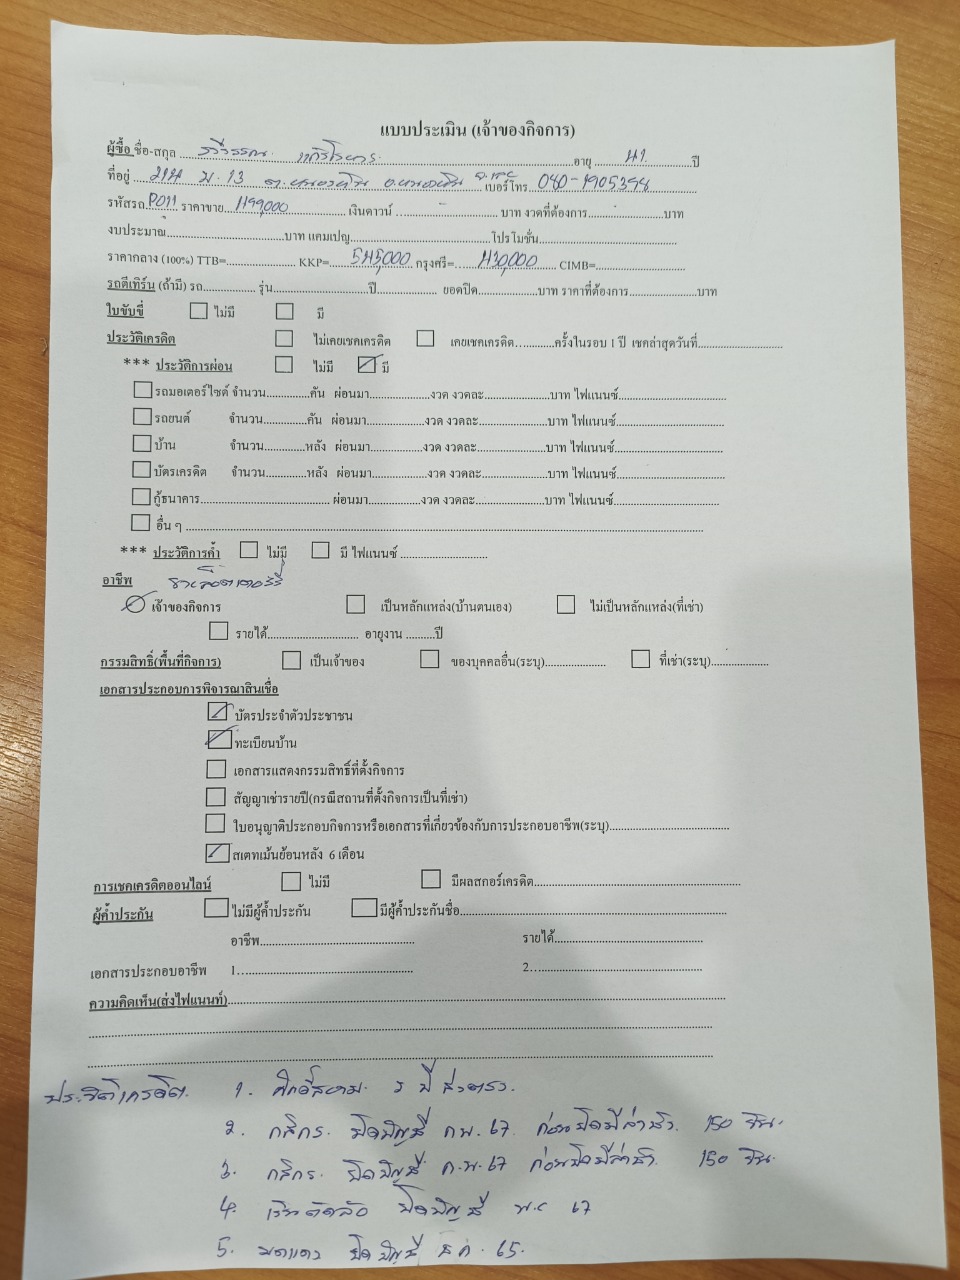 แบบประเมิน (เจ้าของกิจการ)
ผู้ซื้อ ชื่อ-สกุล ............ อายุ 41 ปี
ที่อยู่ 214 ม.13 ต.หนองหิน อ.หนองหิน จ.เลย เบอร์โทร. 080-4905398
รหัสรถ P011 ราคาขาย 499,000 เงินดาวน์ ............ บาท งวดที่ต้องการ............บาท
งบประมาณ............บาท แคมเปญ............โปรโมชั่น............
ราคากลาง (100%) TTB=............ KKP= 545,000 กรุงศรี= 430,000 CIMB=............
รถตีเทิร์น (ถ้ามี) รถ............ รุ่น............ปี............ ยอดปิด............บาท ราคาที่ต้องการ............บาท
ใบขับขี่ ไม่มี มี
ประวัติเครดิต ไม่เคยเชคเครดิต เคยเชคเครดิต............ครั้งในรอบ 1 ปี เชคล่าสุดวันที่............
*** ประวัติการผ่อน ไม่มี มี
รถมอเตอร์ไซด์ จำนวน............คัน ผ่อนมา............งวด งวดละ............บาท ไฟแนนซ์............
รถยนต์ จำนวน............คัน ผ่อนมา............งวด งวดละ............บาท ไฟแนนซ์............
บ้าน จำนวน............หลัง ผ่อนมา............งวด งวดละ............บาท ไฟแนนซ์............
บัตรเครดิต จำนวน............หลัง ผ่อนมา............งวด งวดละ............บาท ไฟแนนซ์............
กู้ธนาคาร............ ผ่อนมา............งวด งวดละ............บาท ไฟแนนซ์............
อื่น ๆ ............
*** ประวัติการค้ำ ไม่มี มี ไฟแนนซ์ ............
อาชีพ ขายล็อตเตอรี่
เจ้าของกิจการ เป็นหลักแหล่ง(บ้านตนเอง) ไม่เป็นหลักแหล่ง(ที่เช่า)
รายได้............ อายุงาน .........ปี
กรรมสิทธิ์(พื้นที่กิจการ) เป็นเจ้าของ ของบุคคลอื่น(ระบุ)............ ที่เช่า(ระบุ)............
เอกสารประกอบการพิจารณาสินเชื่อ
บัตรประจำตัวประชาชน
ทะเบียนบ้าน
เอกสารแสดงกรรมสิทธิ์ที่ตั้งกิจการ
สัญญาเช่ารายปี(กรณีสถานที่ตั้งกิจการเป็นที่เช่า)
ใบอนุญาติประกอบกิจการหรือเอกสารที่เกี่ยวข้องกับการประกอบอาชีพ(ระบุ)............
สเตทเม้นย้อนหลัง 6 เดือน
การเชคเครดิตออนไลน์ ไม่มี มีผลสกอร์เครดิต............
ผู้ค้ำประกัน ไม่มีผู้ค้ำประกัน มีผู้ค้ำประกันชื่อ............
อาชีพ............ รายได้............
เอกสารประกอบอาชีพ 1............ 2............
ความคิดเห็น(ส่งไฟแนนท์)............
ประวัติเครดิต 1. ศักดิ์สยาม 2 ปี ส่งตรง
2. กสิกร ปิดบัญชี กพ. 67 ก่อนปิดมีล่าช้า 150 วัน.
3. กสิกร ปิดบัญชี ก.พ. 67 ก่อนปิดมีล่าช้า 150 วัน.
4. เงินติดล้อ ปิดบัญชี พ.ค 67
5. ปิดบัญชี ธ.ค. 65.